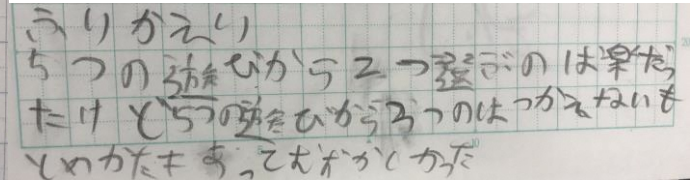 ふりかえり
5つの遊びから2つ選ぶのは楽だっ
たけど5つの遊びから3つのはつかえないも
とめかたもあってむずかしかった